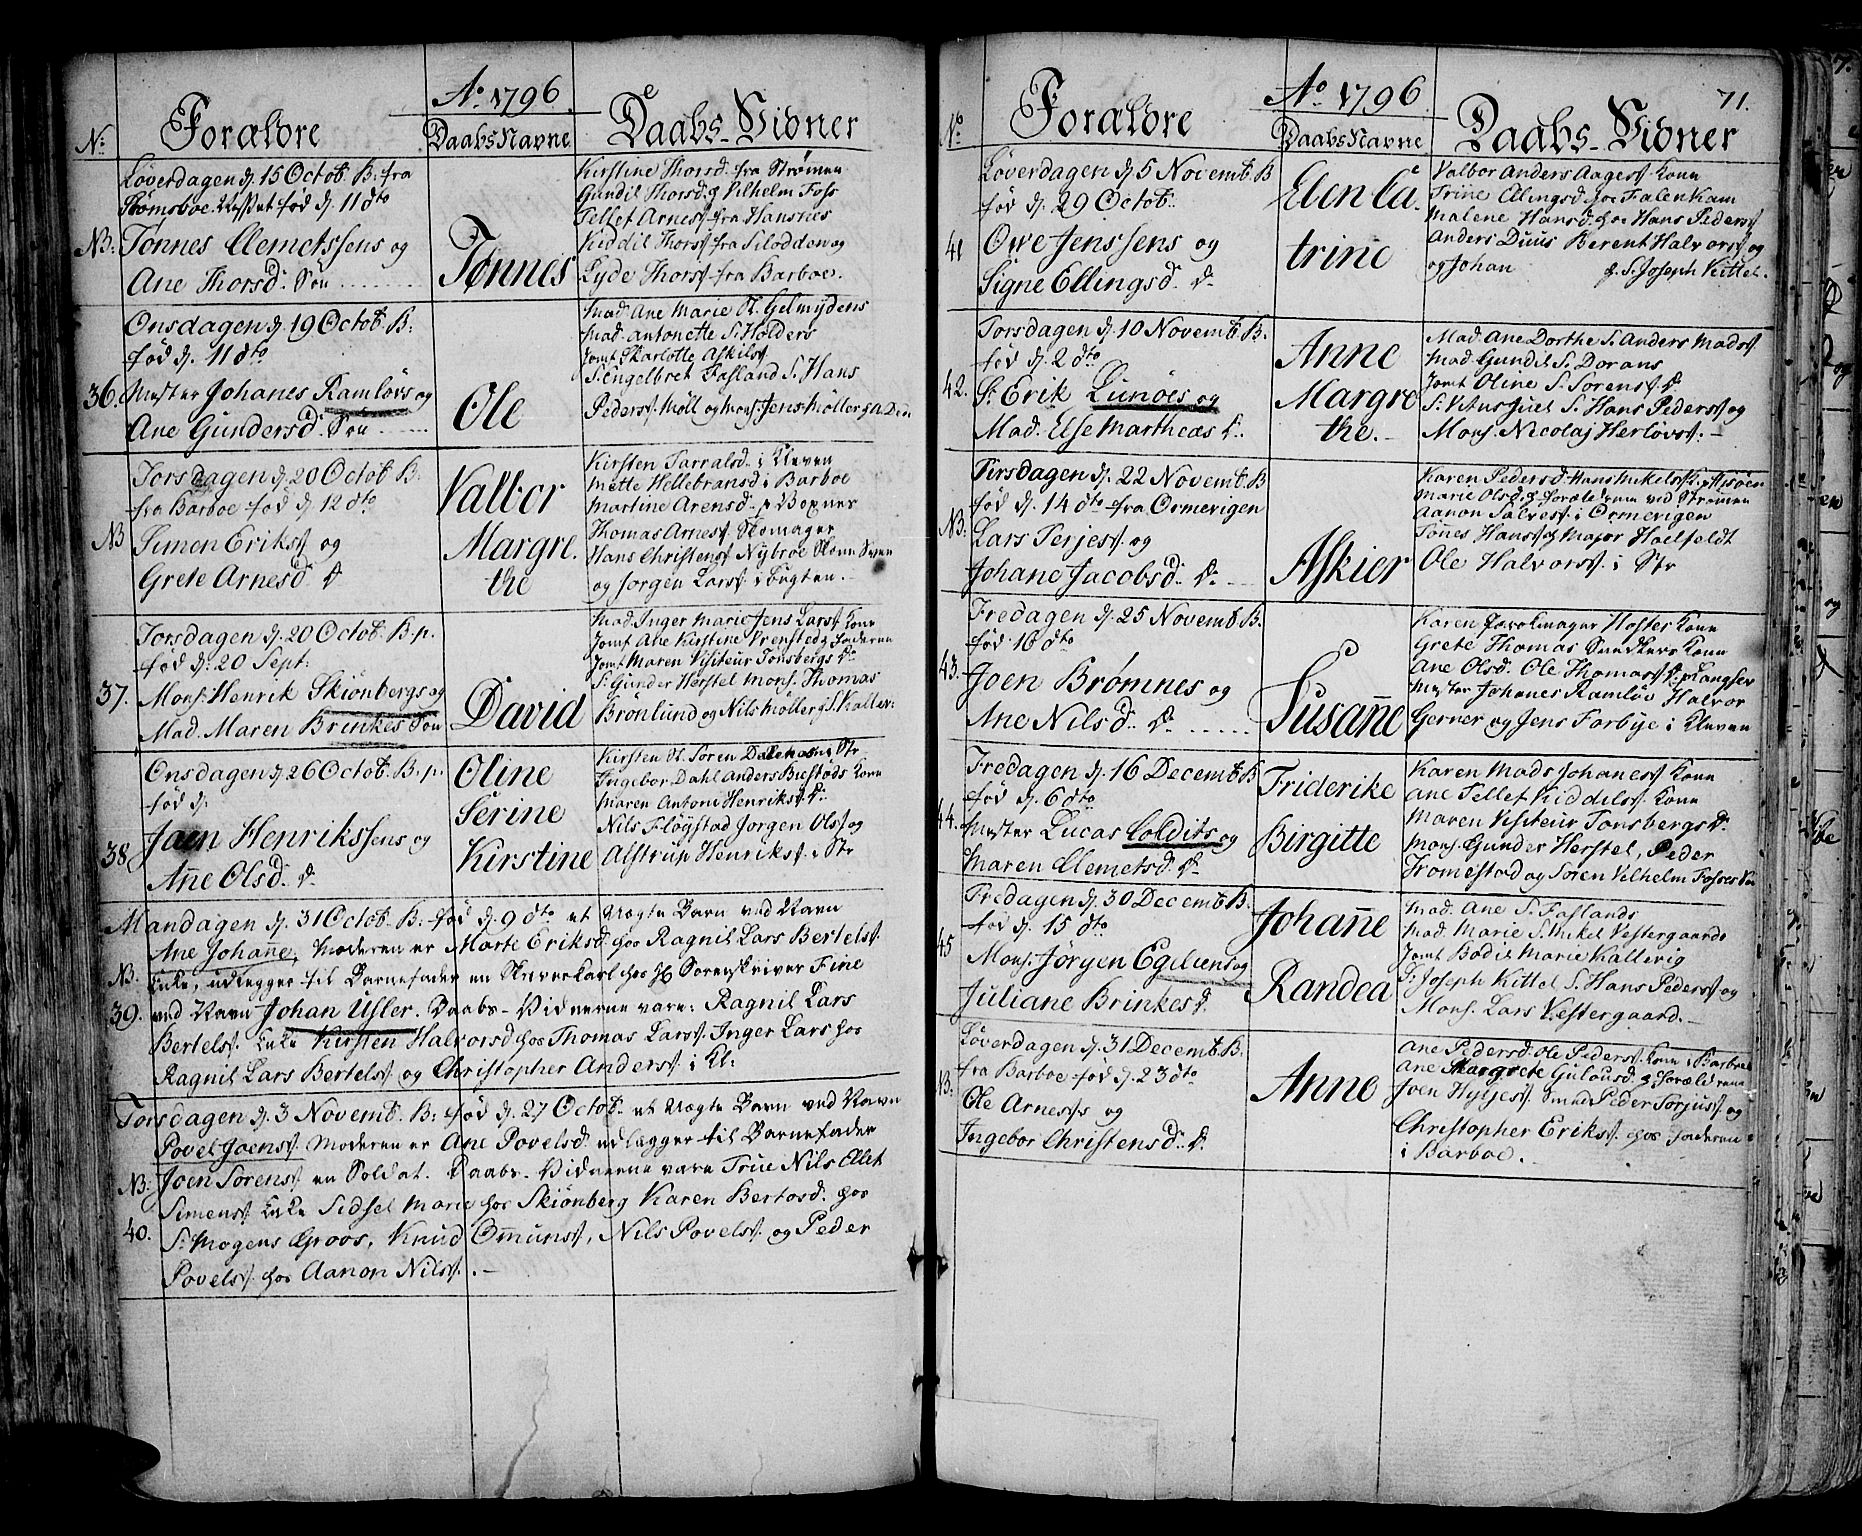 Ao 1796
No Forældre DaabsNavne Daabs-Vidner
Løverdagen d. 15 Octob. B: fra
Strømsboe født d. 11 dto
NB. Tønnes Clemetssens og
Ane Thorsd. Søn
Tønnes
Kirstine Thorsd. fra Strømen
Gundil Thorsd. og Vilhelm Foss
Tellef Arness. fra Hansnes
Kiddil Thorss. fra Slodden og
Lyde Thorss. fra Barboe.
Onsdagen d. 19 Octob. B:
fød d. 11 dto
36. Mester Johanes Ramløvs og
Ane Gundersd. Søn
Ole
Mad. Ane Marie Gelmydens
Mad. Antonette S. Holders
Jomf. Skarlotte Askilss.
S. Engelbret Fasland S. Hans
Pederss. Møll og Mons. Jens Møller
Torsdagen d. 20 Octob. B:
fra Barboe fød d. 12 dto
NB Simon Erikss. og
Grete Arnesd. D.
Valbor
Margre.
the
Kirsten Tarralsd. i Kleven
Mette Hellebransd. i Barboe
Martine Arensd.
Thomas Arness. Skomager
Hans Christens. Nybroe
og Jørgen Larss. i Bugten.
Torsdagen d. 20 Octob. B. p.
fød d. 20 Sept:
37. Mons. Henrik Skiønbergs og
Mad. Maren Brinkes Søn
David
Mad. Inger Marie Jens Larss. Kone
Jomf. Ane Kirstine Vrensted og Faderen
Jomf. Maren Visiteur Tonsbergs D.
S. Gunder Herstel Mons. Thomas
Brønlund og Nils Møller
Onsdagen d. 26 Octob. B. p.
fød d.
38. Jaen Henrikssens og
Añe Olsd. D.
Oline
Serine
Kirstine
Kirsten Ol. Søren
Ingebor Dahl Anders Biestøds Kone
Maren Antoni Henrikss. D.
Nils Fløystad Jørgen Olss. og
Alstrup Henrikss. i Str
Mandagen d. 31 Octob. B: fød d. 9 dto et Uægte Barn ved Navn
Ane Johañe, Moderen er Marte Eriksd. hos Ragnil Lars Bertelss.
NB. Enke, udlegger til Barnefader en Skriverkarl hos Hr. Sorenskriver Fine
39. ved Navn Johan Usler. Daabs-Vidnerne vare: Ragnil Lars
Bertelss. Enke Kirsten Halvorsd. hos Thomas Larss. Inger Lars hos
Ragnil Lars Bertelss. og Christopher Anderss. i Kl:
Torsdagen d. 3 Novemb. B: fød d. 27 Octob. et Uægte Barn ved Navn
Povel Joenss. Moderen er Ane Povelsd. udlægger til Barnefader
NB. Joen Sørenss. en Soldat. Daabs-Vidnerne vare Trine Nils Ellef
40. Simenss. Enke Sidsel Marie hos Skiønberg Karen Bertosd. hos
S. Mogens Groos, Knud Omunss., Nils Povelss. og Peder
Povelss. hos Aanon Nilss.
Ao 1796 71.
No Forældre DaabsNavne Daabs-Vidner
Løverdagen d. 5 Novemb. B
fød d. 29 Octob:
41 Owe Jenssens og
Signe Ellingsd. D.
Elen Ca.
trine
Valbor Anders Aagess. Kone
Trine Elingsd. hos Falenkam
Malene Hansd. hos Hans Pederss.
Anders Duus Berent Halvorss. og
og Johan S. Joseph Kittel.
Torsdagen d. 10 Novemb. B.
fød d. 2 dto
42. S. Erik Lunøes og
Mad. Else Martheæs D.
Anne
Margre
the.
Mad. Ane Dorthe S. Anders Madss.
Mad. Gundil S. Dorans
Jomf. Oline S. Sørenss. D.
S. Vitus Juel S. Hans Pederss. og
Mons. Nicolaj Herløvs.
Tirsdagen d. 22 Novemb. B
fød d. 14 dto fra Ormevigen
NB. Lars Terjess. og
Johane Jacobsd. D.
Askier
Karen Pedersd. Hans Mikelss.
Marie Olsd. Forældrene ved Strømen
Aanon Salvess. i Ormevigen
Tõnes Hanss. og Major Hoelfeldt
Ole Halvorss. i Str
Fredagen d. 25 Novemb. B.
fød 16 dto
43. Joen Brømnes og
Ane Nilsd. D.
Susañe
Karen Høster Kone
Grete Thomas Snedkers Kone
Ane Olsd. Ole Thomass. D. Langsev
Mester Johanes Ramløv Halvor
Gerner og Jens Farbye i Kleven
Fredagen d. 16 Decemb. B
fød d. 6 dto
44. Mester Lucas Colditz og
Maren Clemetsd. D.
Friderike
Birgitte
Karen Mads Johaness. Kone
Ane Tellef Kiddelss. Kone
Maren Visiteur Tonsbergs D.
Mons. Gunder Herstel, Peder
Tromestad og Søren Velhelm Fosses
Fredagen d. 30 Decemb. B.
fød d. 15 dto
45 Mons. Jørgen Egelsens og
Juliane Brinkes D.
Johañe
Randea
Mad. Ane S. Faslands
Mad. Marie S. Mikel Vestergaards
Jomf. Bodil Marie Kallevig
S. Joseph Kittel S. Hans Pederss. og
Mons. Lars Vestergaard.
Løverdagen d. 31 Decemb. B.
fra Barboe fød d. 23 dto
NB. Ole Arness. og
Ingebor Christensd. D.
Anne
Ane Pedersd. Ole Pederss. Kone i Barboe
Ane Margrete Gulousd. Forældrene
Joen Hyljess. Smed Peder Torjuss. og
Christopher Erikss. hos Faderen
i Barboe.